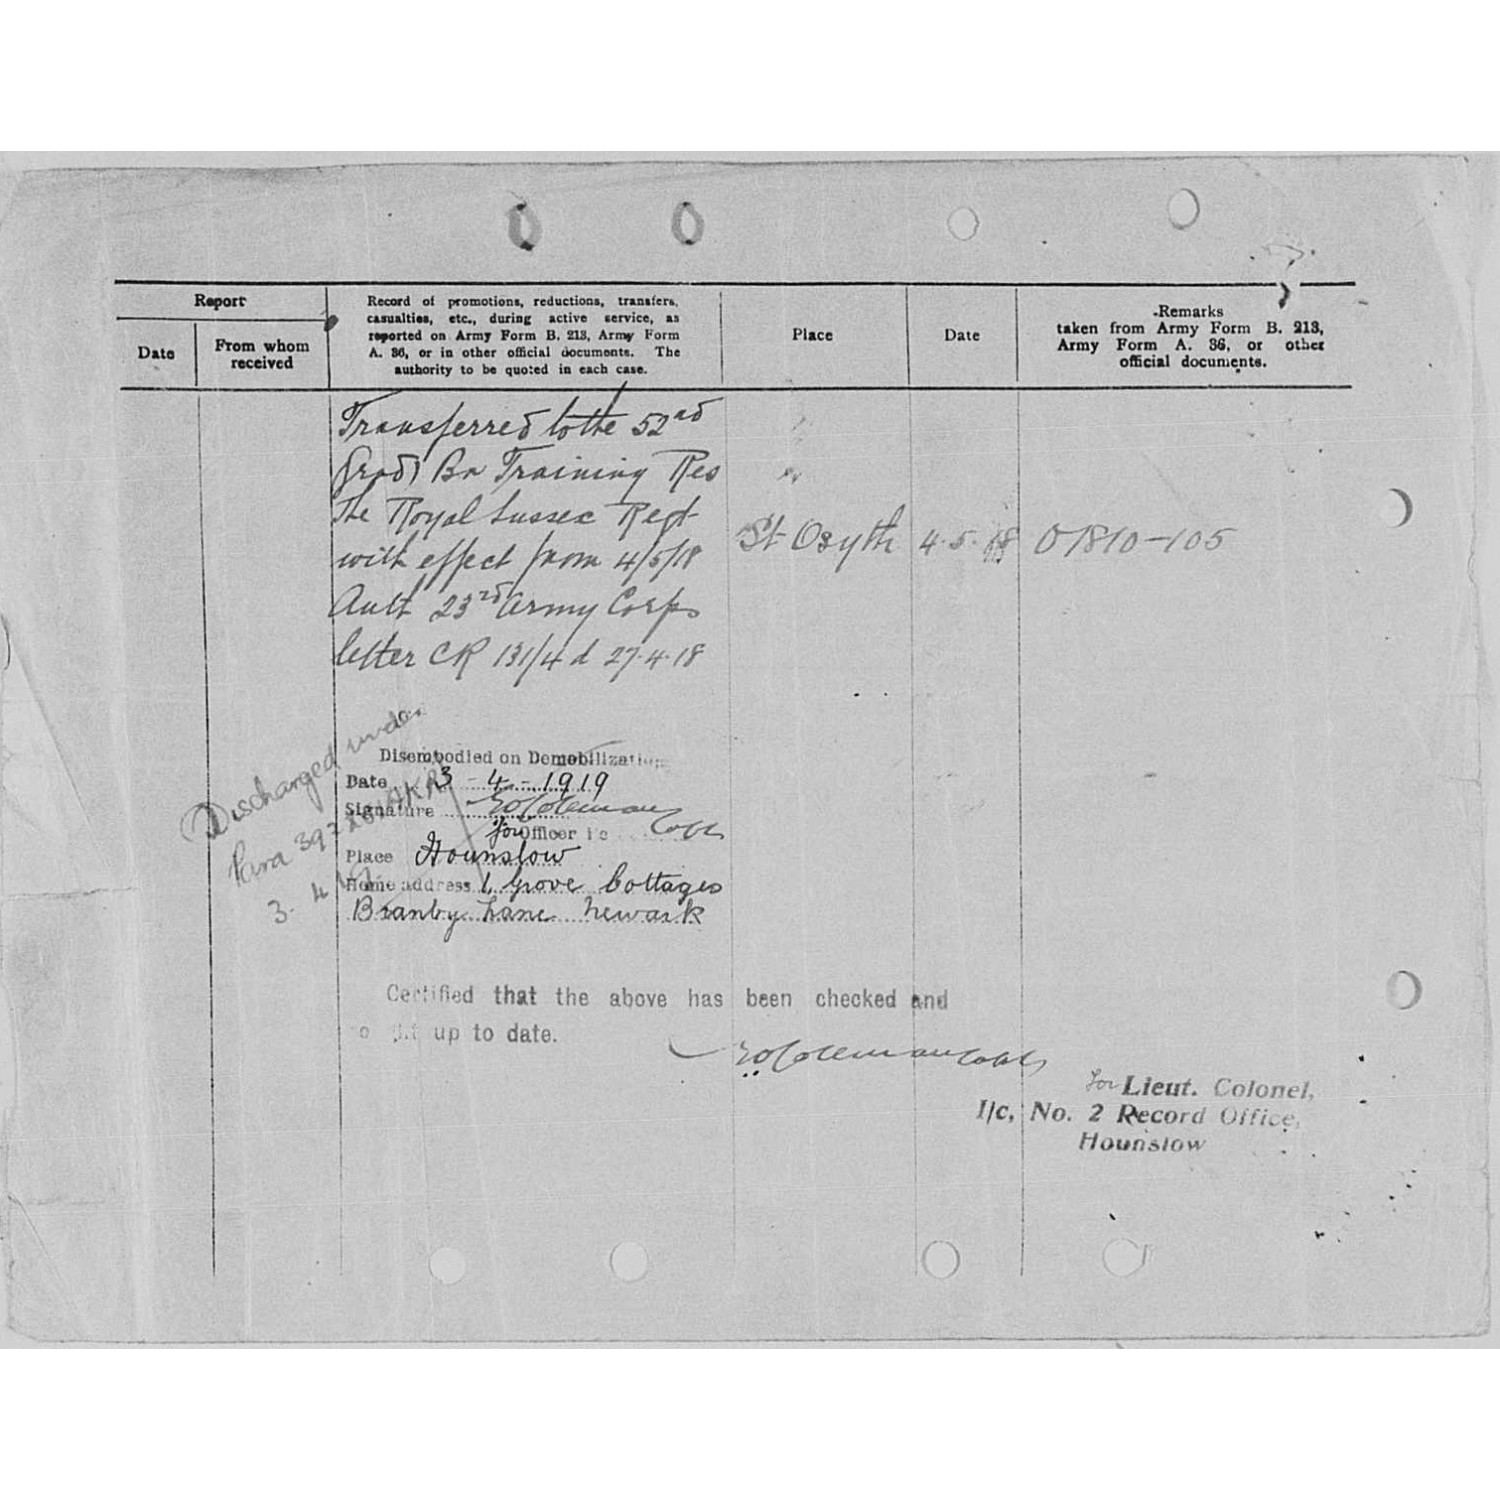 Report
Date
From whom
received
Record of promotions, reductions, transfers,
casualties, etc., during active service, as
reported on Army Form B. 213, Army Form
A. 36, or in other official documents. The
authority to be quoted in each case.
Place
Date
Remarks
taken from Army Form B. 213,
Army Form A. 36, or other
official documents.
Transferred to the 52nd
Grad) Bn Training Res
The Royal Sussex Regt
with effect from 4/5/18
Auth 23rd Army Corps
letter CR 131/4 d 27.4.18
St Osyth
4.5.18
O 1810-105
Discharged under
Para 392
3. 4
Disembodied on Demobilization
Date 3-4-1919
Signature
for Officer i/c
Place Hounslow
Home address 1, Grove Cottages
Branby Lane Newark
Certified that the above has been checked and
up to date.
for Lieut. Colonel,
I/c, No. 2 Record Office,
Hounslow